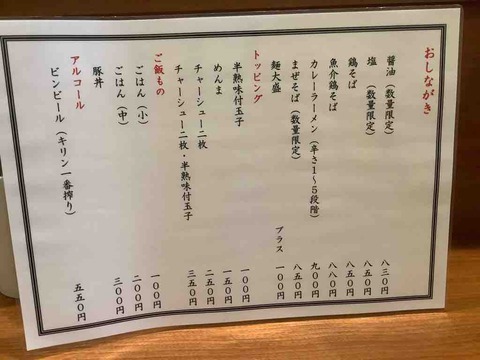 おしながき
醤油（数量限定） 八三〇円
塩（数量限定） 八五〇円
鶏そば 八五〇円
魚介鶏そば 八八〇円
カレーラーメン（辛さ１～５段階） 九〇〇円
まぜそば（数量限定） 八五〇円
麺大盛 プラス 一〇〇円
トッピング
半熟味付玉子 一〇〇円
めんま 一五〇円
チャーシュー二枚 二五〇円
チャーシュー二枚・半熟味付玉子 三五〇円
ご飯もの
ごはん（小） 一〇〇円
ごはん（中） 二〇〇円
豚丼 三〇〇円
アルコール
ビンビール（キリン一番搾り） 五五〇円